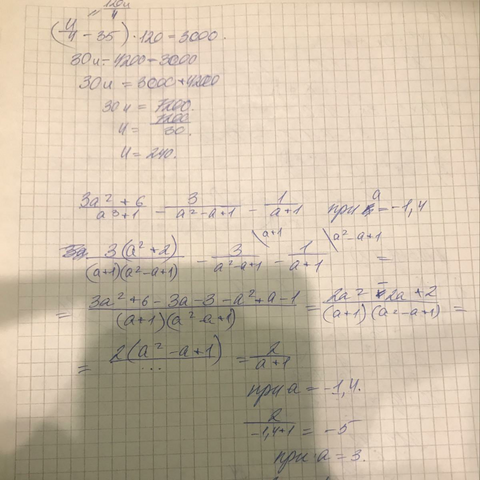 120и
(и/4 - 35) · 120 = 3000.
30и - 4200 = 3000
30и = 3000 + 4200
30и = 7200.
и = 7200/30.
и = 240.
(3a² + 6)/(a³ + 1) - 3/(a² - a + 1) - 1/(a + 1) при a = -1,4
3(a² + 2)/((a + 1)(a² - a + 1)) - 3/(a² - a + 1) \a+1 - 1/(a + 1) \a² - a + 1 =
= (3a² + 6 - 3a - 3 - a² + a - 1)/((a + 1)(a² - a + 1)) = (2a² - 2a + 2)/((a + 1)(a² - a + 1)) =
= 2(a² - a + 1)/... = 2/(a + 1)
при a = -1,4.
2/(-1,4 + 1) = -5
при a = 3.